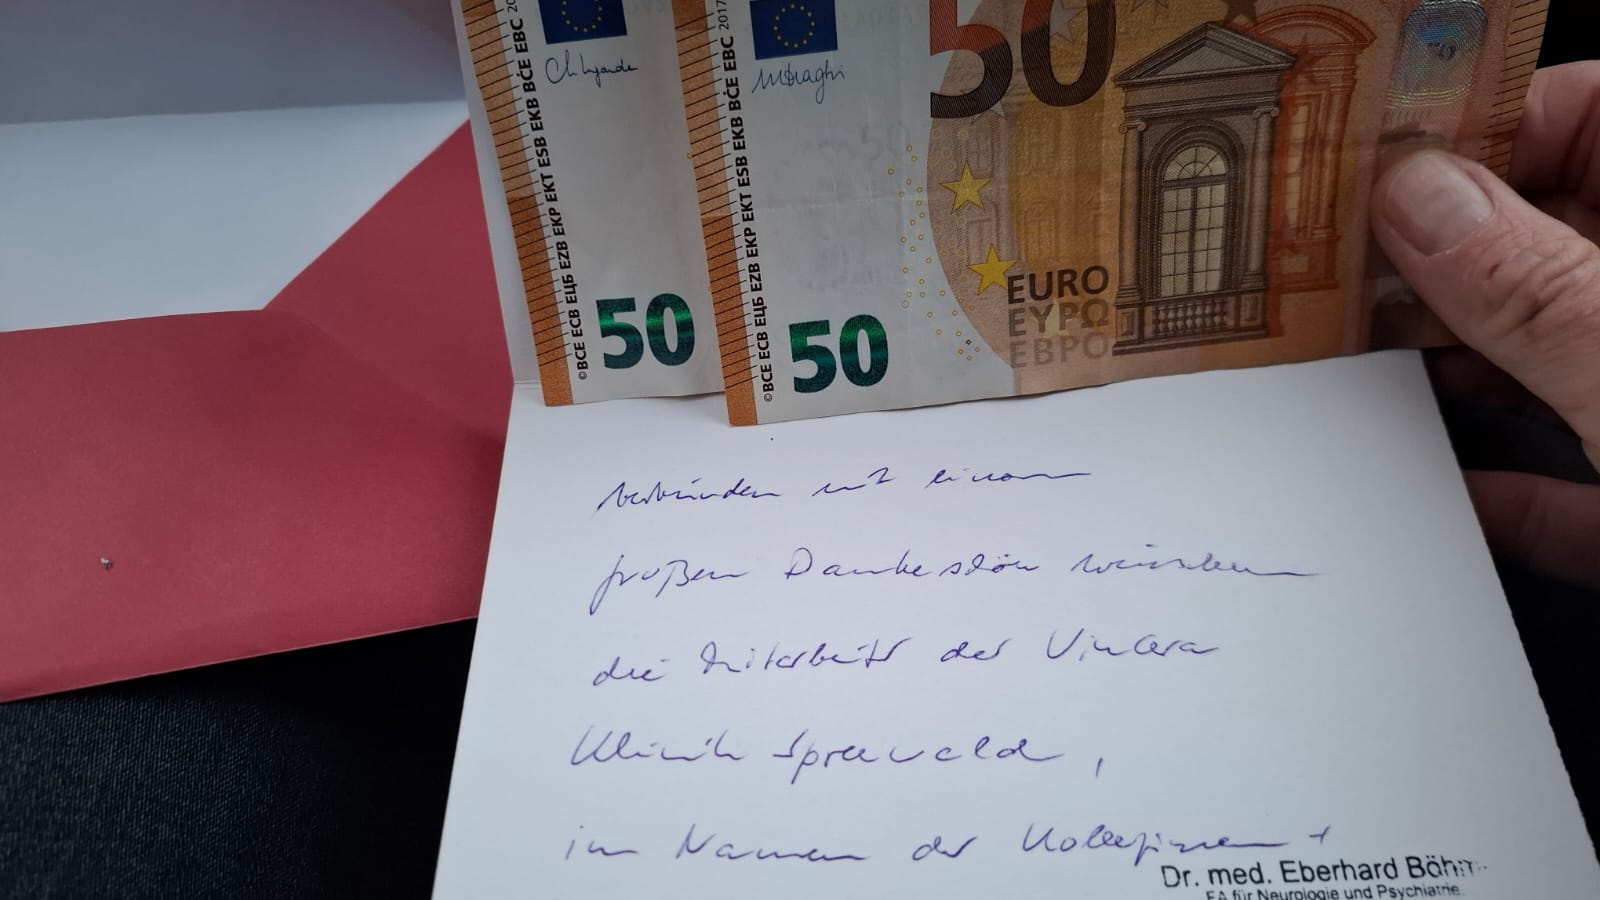 BCE ECB ЕЦБ EZB EKP EKT ESB EKB BĊE EBC 20
50
©BCE ECB ЕЦБ EZB EKP EKT ESB EKB BĊE EBC 2017
50
50
EURO
ΕΥΡΩ
ЕВРО
verbunden mit einem
großen Dankeschön wünschen
die Mitarbeiter der Vincera
Klinik Spreewald,
im Namen der Kolleginnen +
Dr. med. Eberhard Böhm
FA für Neurologie und Psychiatrie